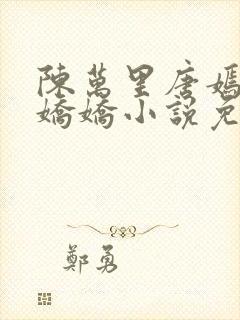 陳萬里唐嫣
嬌嬌小說免
鄭勇